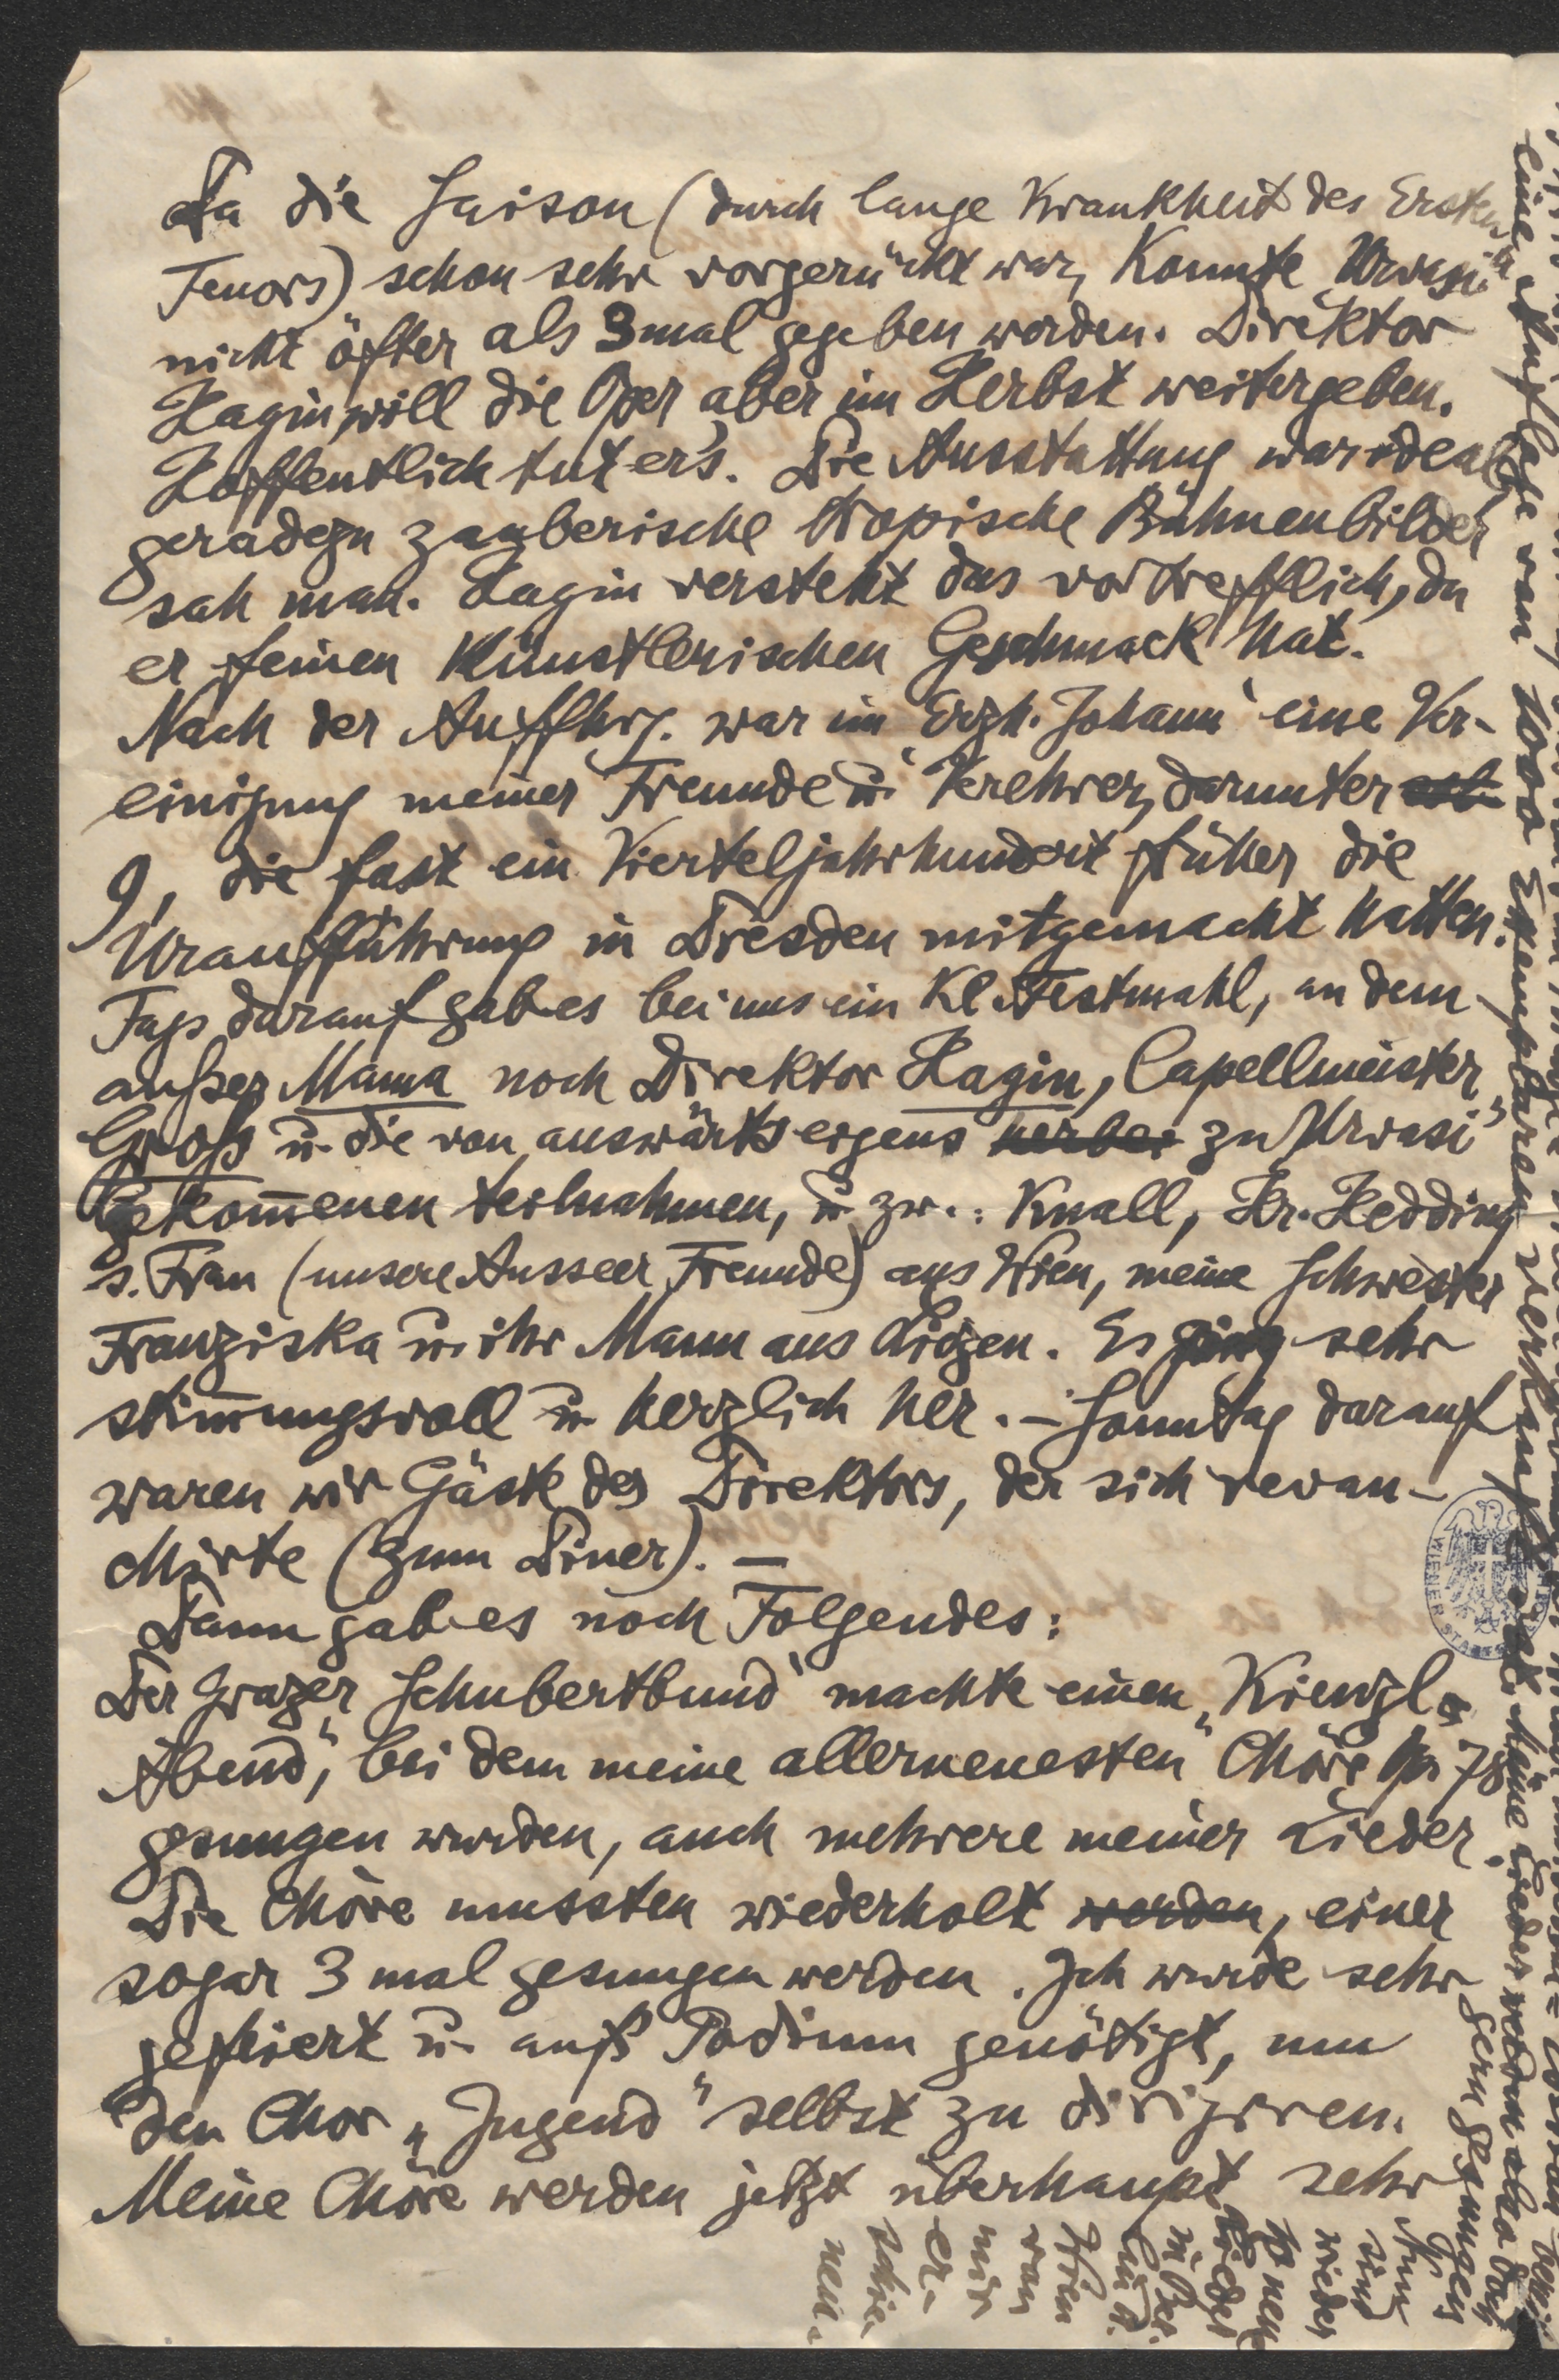 Da die Saison (durch lange Krankheit des Ersten
Tenors) schon sehr vorgerückt war, konnte „Urvasi"
nicht öfter als 3mal gegeben werden. Direktor
Hagin will die Oper aber im Herbst weitergeben.
Hoffentlich tut er's. Die Ausstattung war ideal,
geradezu zauberische tropische Bühnenbilder
sah man. Hagin versteht das vortrefflich, da
er feinen künstlerischen Geschmack hat.
Nach der Auffhrg. war im „Erzh. Johann" eine Ver-
einigung meiner Freunde u. Verehrer, darunter
9, die fast ein Vierteljahrhundert früher die
Uraufführung in Dresden mitgemacht hatten.
Tags darauf gab es bei uns ein kl. Festmahl, an dem
außer Mama noch Direktor Hagin, Capellmeister
Groß u. die von auswärts eigens zu „Urvasi"
gekom̅enen teilnahmen, u. zw.: Knall, Hr. Hedding
s. Frau (unsere Ausseer Freunde) aus Wien, meine Schwester
Franziska u. ihr Mann aus Liezen. Es ging sehr
stim̅ungsvoll u. herzlich her. – Sonntag darauf
waren wir Gäste des Direktors, der sich revan-
chirte (zum Diner). –
Dann gab es noch Folgendes:
Der Grazer „Schubertbund" machte einen „Kienzl-
Abend", bei dem meine „allerneuesten" Chöre Op. 78
gesungen wurden, auch mehrere meiner Lieder.
Die Chöre mussten wiederholt werden, einer
sogar 3 mal gesungen werden. Ich wurde sehr
gefeiert u. aufs Podium genötigt, um
den Chor „Jugend" selbst zu dirigiren.
Meine Chöre werden jetzt überhaupt sehr
gern gesungen
Nun
sind
wieder
10 neue
Lieder
in
Wien
von
mir
er-
schie-
nen.
eine Auflage von 1000 Exemplaren verkauft hat. Meine Lieder werden also doch
WIENER STADT